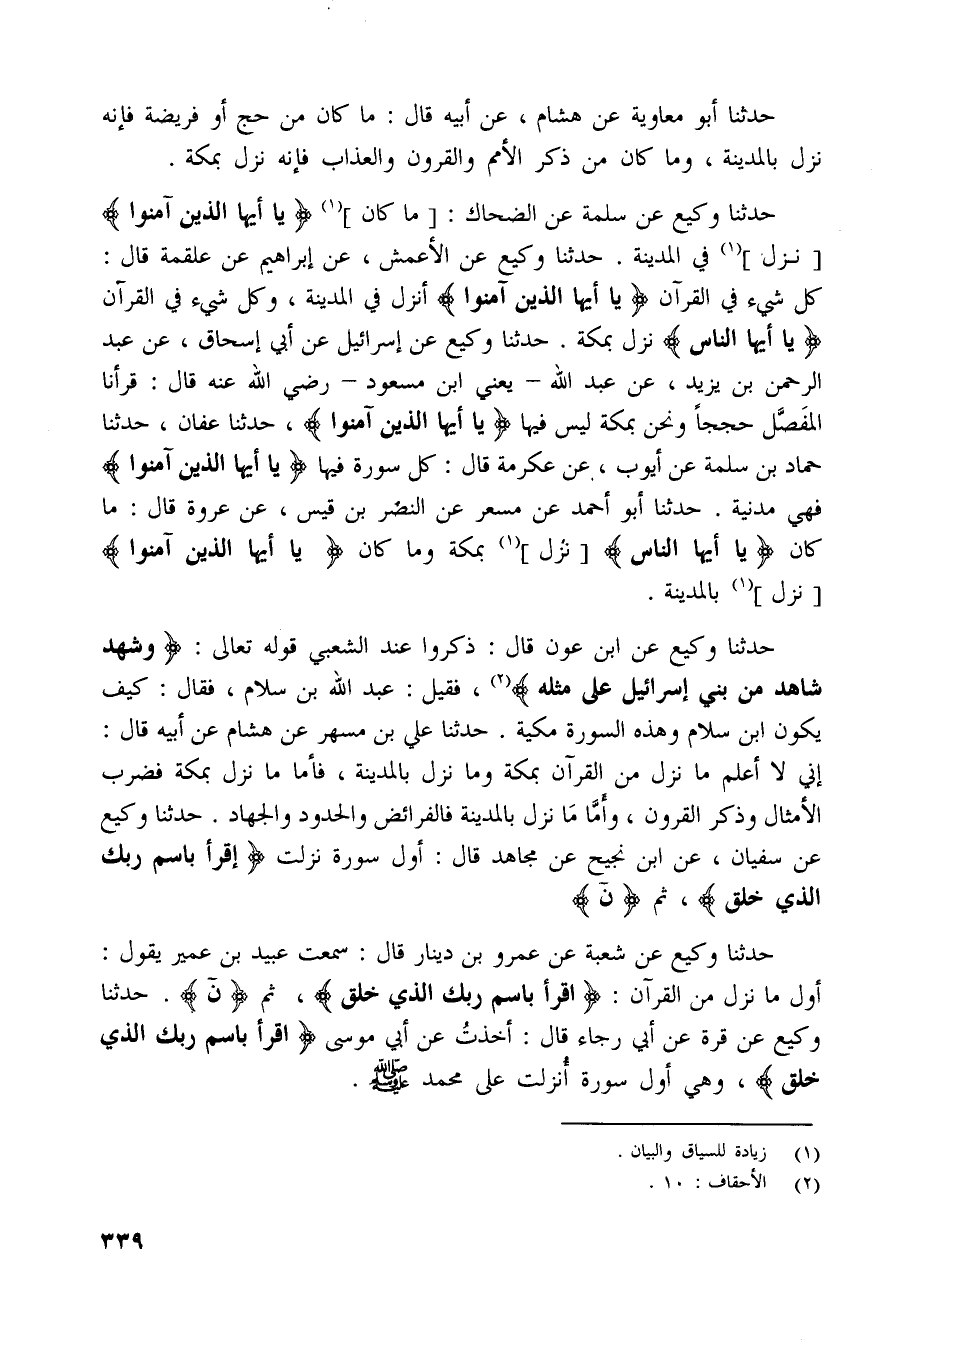 حدثنا أبو معاوية عن هشام ، عن أبيه قال : ما كان من حج أو فريضة فإنه
نزل بالمدينة ، وما كان من ذكر الأمم والقرون والعذاب فإنه نزل بمكة .
حدثنا وكيع عن سلمة عن الضحاك : [ ما كان ](١) ﴿ يا أيها الذين آمنوا ﴾
[ نـزل ](١) في المدينة . حدثنا وكيع عن الأعمش ، عن إبراهيم عن علقمة قال :
كل شيء في القرآن ﴿ يا أيها الذين آمنوا ﴾ أنزل في المدينة ، وكل شيء في القرآن
﴿ يا أيها الناس ﴾ نزل بمكة . حدثنا وكيع عن إسرائيل عن أبي إسحاق ، عن عبد
الرحمن بن يزيد ، عن عبد الله – يعني ابن مسعود – رضي الله عنه قال : قرأنا
المُفَصَّل حججاً ونحن بمكة ليس فيها ﴿ يا أيها الذين آمنوا ﴾ ، حدثنا عفان ، حدثنا
حماد بن سلمة عن أيوب ، عن عكرمة قال : كل سورة فيها ﴿ يا أيها الذين آمنوا ﴾
فهي مدنية . حدثنا أبو أحمد عن مسعر عن النضر بن قيس ، عن عروة قال : ما
كان ﴿ يا أيها الناس ﴾ [ نزل ](١) بمكة وما كان ﴿ يا أيها الذين آمنوا ﴾
[ نزل ](١) بالمدينة .
حدثنا وكيع عن ابن عون قال : ذكروا عند الشعبي قوله تعالى : ﴿ وشهد
شاهد من بني إسرائيل على مثله ﴾(٢) ، فقيل : عبد الله بن سلام ، فقال : كيف
يكون ابن سلام وهذه السورة مكية . حدثنا علي بن مسهر عن هشام عن أبيه قال :
إني لا أعلم ما نزل من القرآن بمكة وما نزل بالمدينة ، فأما ما نزل بمكة فضرب
الأمثال وذكر القرون ، وأَمَّا مَا نزل بالمدينة فالفرائض والحدود والجهاد . حدثنا وكيع
عن سفيان ، عن ابن نجيح عن مجاهد قال : أول سورة نزلت ﴿ إقرأ باسم ربك
الذي خلق ﴾ ، ثم ﴿ نٓ ﴾
حدثنا وكيع عن شعبة عن عمرو بن دينار قال : سمعت عبيد بن عمير يقول :
أول ما نزل من القرآن : ﴿ اقرأ باسم ربك الذي خلق ﴾ ، ثم ﴿ نٓ ﴾ . حدثنا
وكيع عن قرة عن أبي رجاء قال : أخذتُ عن أبي موسى ﴿ اقرأ باسم ربك الذي
خلق ﴾ ، وهي أول سورة أُنزلت على محمد ﷺ .
(١) زيادة للسياق والبيان .
(٢) الأحقاف : ١٠ .
٣٣٩